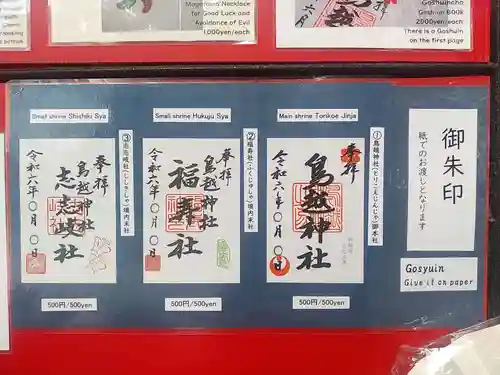 Magatama Necklace
for Good Luck and
Avoidance of Evil
1,000yen/each
Goshuincho
Goshuin Book
2000yen/each
There is a Goshuin
on the first page
御朱印
紙でのお渡しとなります
Gosyuin
Give it on paper
Main shrine Torikoe Jinja
①鳥越神社(とりこえじんじゃ)御本社
奉拝
鳥越神社
令和六年〇月〇日
500円/500yen
Small shrine Hukujyu Sya
②福寿社(ふくじゅしゃ)境内末社
奉拝
鳥越神社
福寿社
令和六年〇月〇日
500円/500yen
Small shrine Shishiki Sya
③志志岐社(ししきしゃ)境内末社
奉拝
鳥越神社
志志岐社
令和六年〇月〇日
500円/500yen